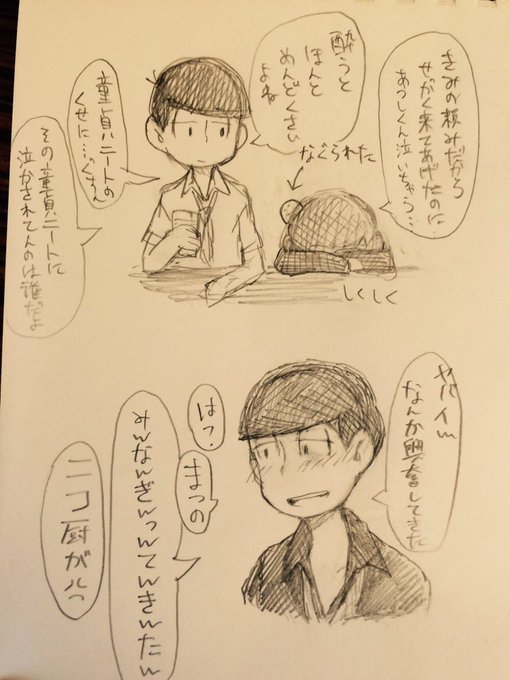 きみの頼みだから
せがく来てあげたのに
あつしくん泣いちゃう…
酔うと
ほんと
めんどくさい
よね
なぐられた
しくしく
童貞ニートの
くせに…
その童貞ニートに
泣かされてんのは誰だよ
ヤバイw
なんか興奮してきた
は?
まつの
みwなwぎwっwてwきwたw
ニコ厨